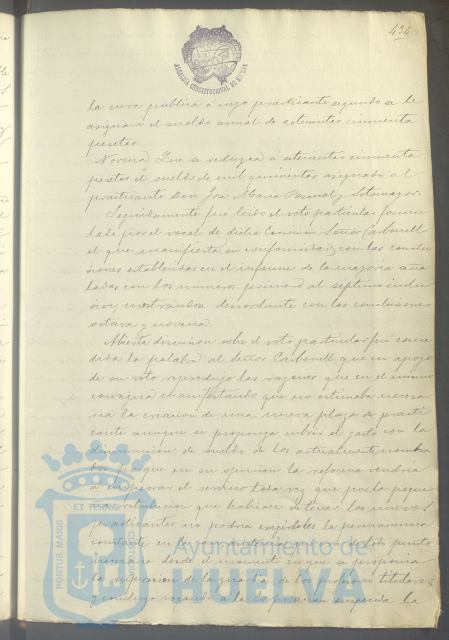 434
ALCALDIA CONSTITUCIONAL DE HUELVA
la cura publica á cuyo practicante segundo se le
asignará el sueldo anual de setecientas cincuenta
pesetas.
Novena Que se reduzca a setecientas cincuenta
pesetas el sueldo de mil quinientas asignado al
practicante Don José Maria Rosenal y Sotomayor.
Seguidamente fué leido el voto particular formu
lado por el vocal de dicha Comision Señor Carbonell
el que manifiesta su conformidad con las conclu
siones establecidas en el informe de la mayoria seña
ladas con los números primero al septimo inclu
sive, mostrandose discordante con las conclusiones
octava y novena.
Abierta discusion sobre el voto particular fué conce
dida la palabra al Señor Carbonell que en apoyo
de su voto reprodujo las razones que en el mismo
consigna manifestando que no estimaba necesa
ria la creacion de una nueva plaza de practi
cante aunque se proponga cubrir el gasto con la
disminucion de sueldo de los actualmente nombra
dos porque en su opinion la reforma vendria
a empeorar el servicio toda vez que por la peque
ña retribucion que habian de tener los nuevos
practicantes no podria exigirseles la permanencia
constante en la que era de todo punto
necesaria desde el momento en que se proponia
la supresion de la guardia de los profesores titulares
y concluyó rogando a la Corporacion la
ET TERRÆ
PORTUS MARIS
CUSTODIA
Ayuntamiento de
HUELVA